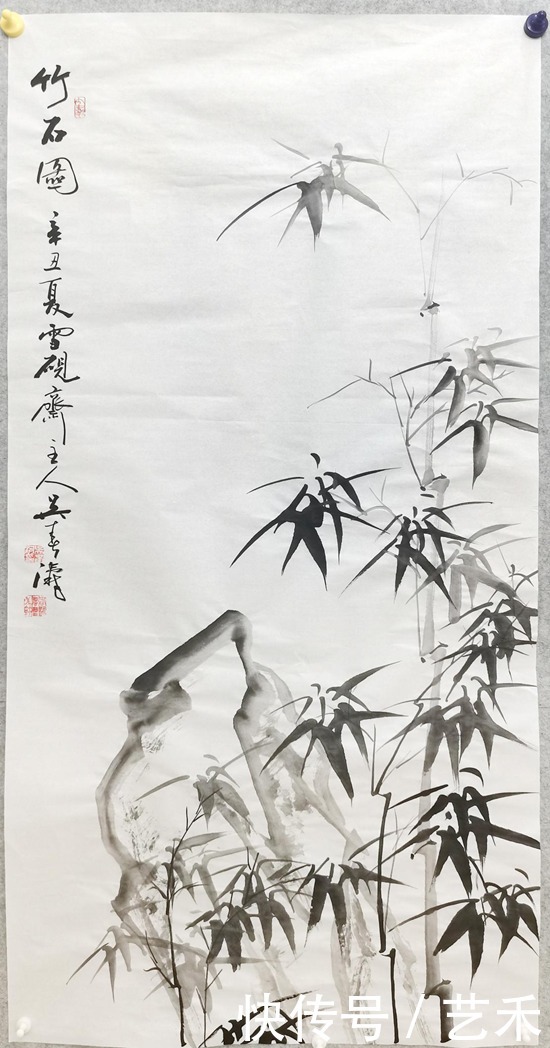 竹石图
辛丑夏雪砚斋主人吴春涛
快传号/艺禾